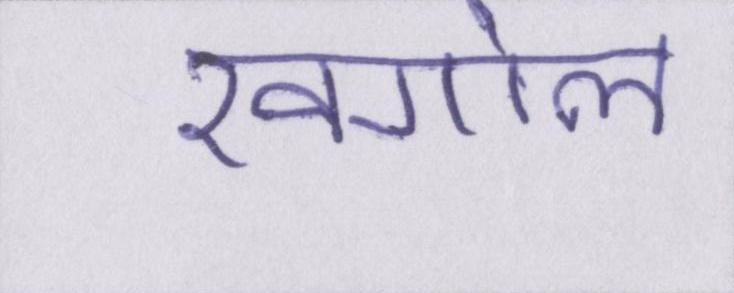 खगोल